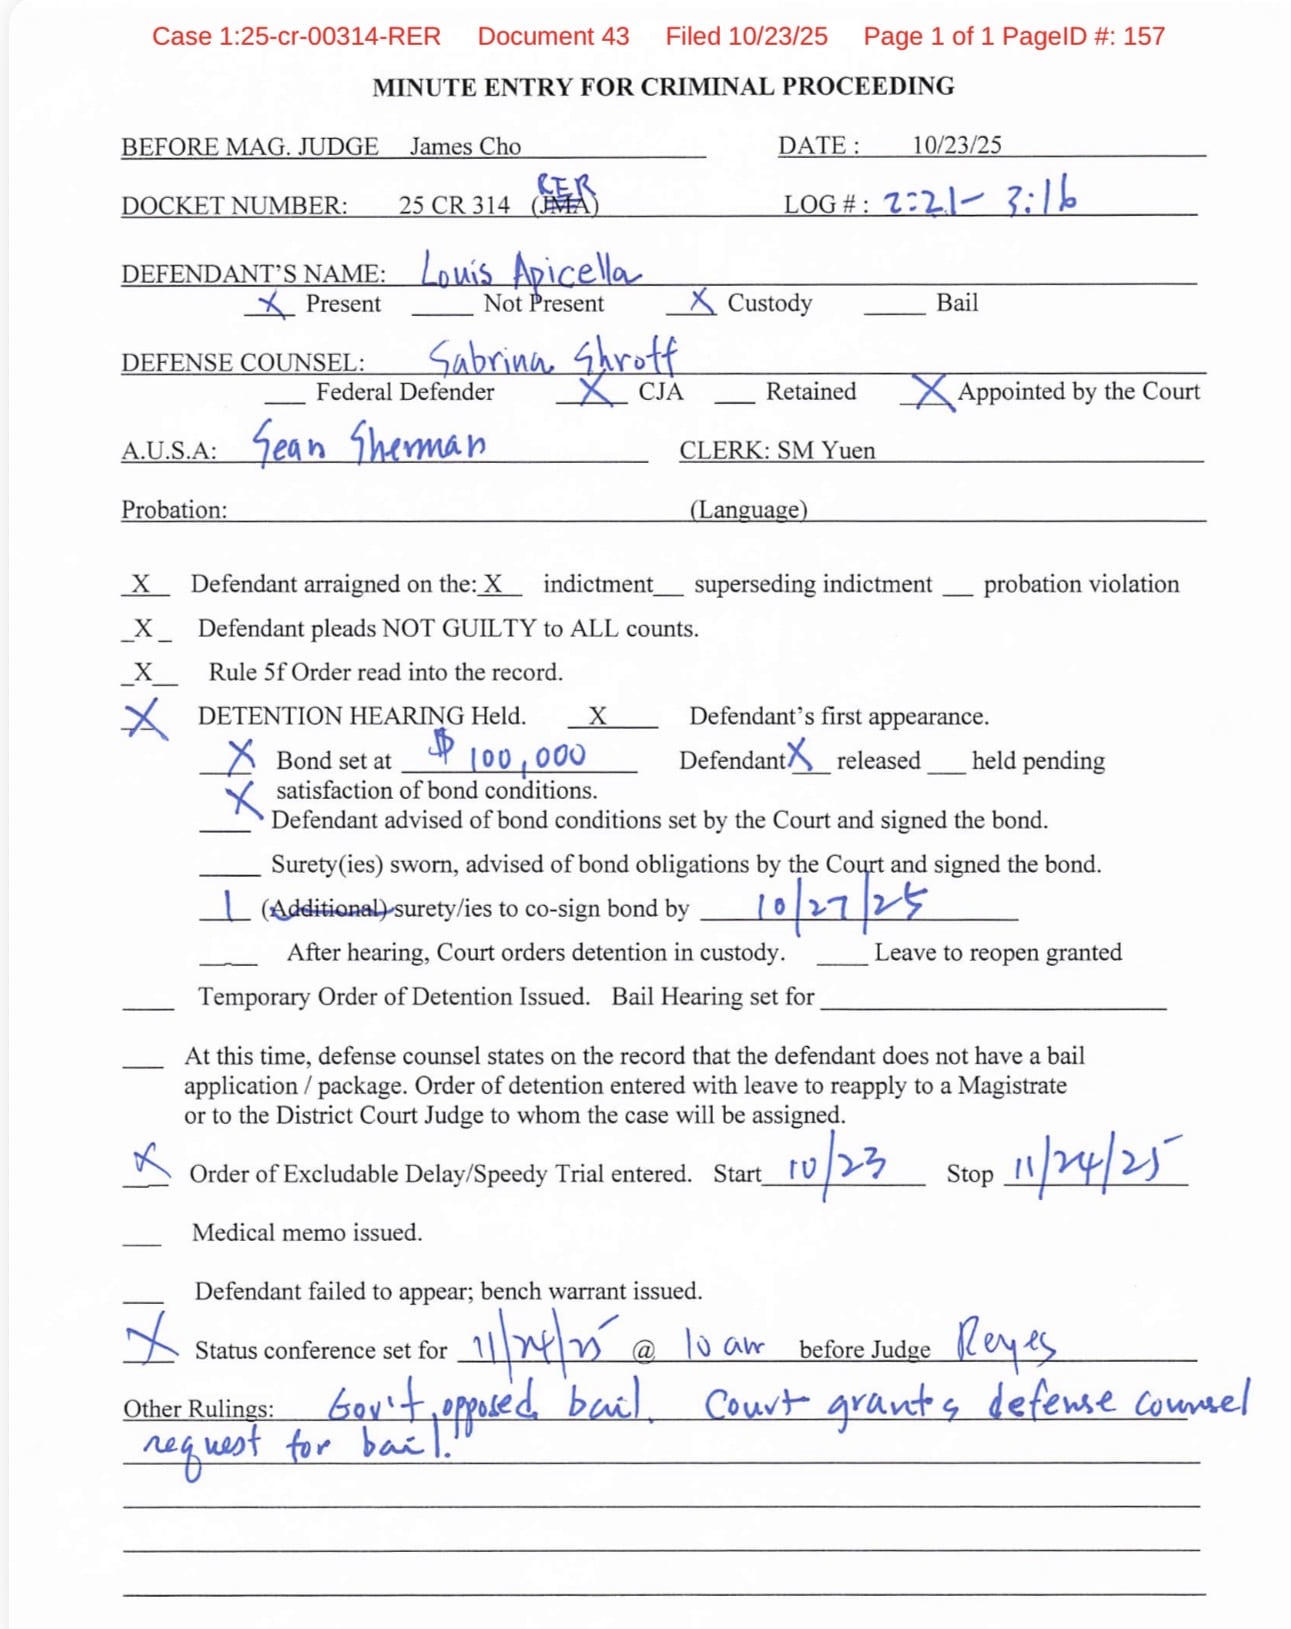 Case 1:25-cr-00314-RER Document 43 Filed 10/23/25 Page 1 of 1 PageID #: 157
MINUTE ENTRY FOR CRIMINAL PROCEEDING
BEFORE MAG. JUDGE James Cho DATE : 10/23/25
RER
DOCKET NUMBER: 25 CR 314 (JMA) LOG # : 2:21- 3:16
DEFENDANT'S NAME: Louis Apicella
X Present ___ Not Present X Custody ___ Bail
DEFENSE COUNSEL: Sabrina Shroff
___ Federal Defender X CJA ___ Retained X Appointed by the Court
A.U.S.A: Sean Sherman CLERK: SM Yuen
Probation: (Language)
X Defendant arraigned on the: X indictment ___ superseding indictment ___ probation violation
X Defendant pleads NOT GUILTY to ALL counts.
X Rule 5f Order read into the record.
X DETENTION HEARING Held. X Defendant's first appearance.
X Bond set at $ 100,000 Defendant X released ___ held pending
X satisfaction of bond conditions.
Defendant advised of bond conditions set by the Court and signed the bond.
___ Surety(ies) sworn, advised of bond obligations by the Court and signed the bond.
1 (Additional) surety/ies to co-sign bond by 10/27/25
___ After hearing, Court orders detention in custody. ___ Leave to reopen granted
___ Temporary Order of Detention Issued. Bail Hearing set for ___
___ At this time, defense counsel states on the record that the defendant does not have a bail
application / package. Order of detention entered with leave to reapply to a Magistrate
or to the District Court Judge to whom the case will be assigned.
X Order of Excludable Delay/Speedy Trial entered. Start 10/23 Stop 11/24/25
___ Medical memo issued.
___ Defendant failed to appear; bench warrant issued.
X Status conference set for 11/24/25 @ 10 am before Judge Reyes
Other Rulings: Gov't opposed bail. Court grants defense counsel
request for bail.